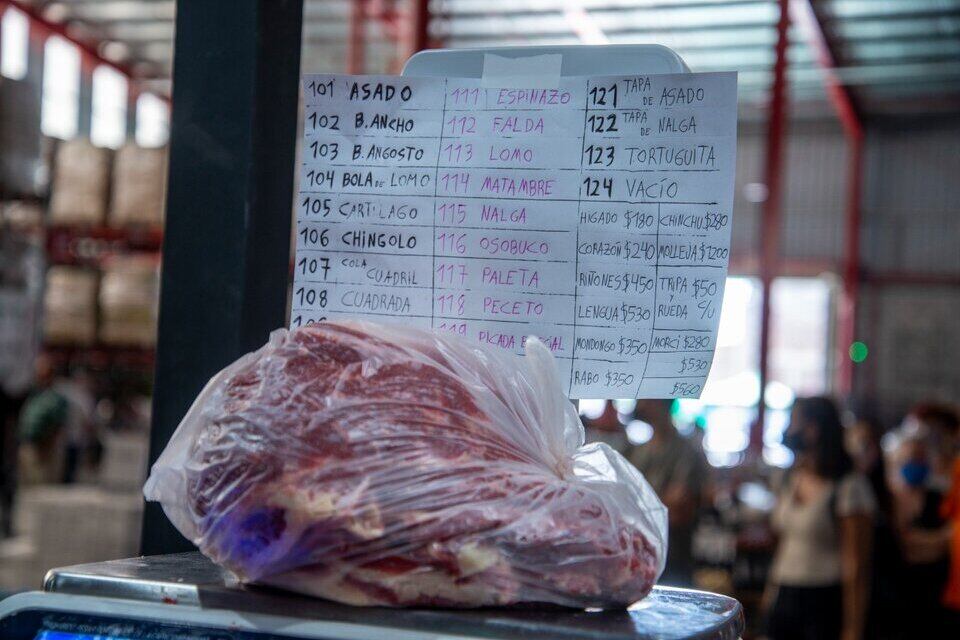 101 ASADO
102 B. ANCHO
103 B. ANGOSTO
104 BOLA DE LOMO
105 CARTILAGO
106 CHINGOLO
107 COLA CUADRIL
108 CUADRADA
111 ESPINAZO
112 FALDA
113 LOMO
114 MATAMBRE
115 NALGA
116 OSOBUCO
117 PALETA
118 PECETO
119 PICADA
121 TAPA DE ASADO
122 TAPA DE NALGA
123 TORTUGUITA
124 VACÍO
HIGADO $180
CORAZON $240
RIÑONES $450
LENGUA $530
MONDONGO $350
RABO $350
CHINCHU $280
MOLLEJA $1200
TRIPA $50
Y
RUEDA S/U
MORCI $280
$530
$560